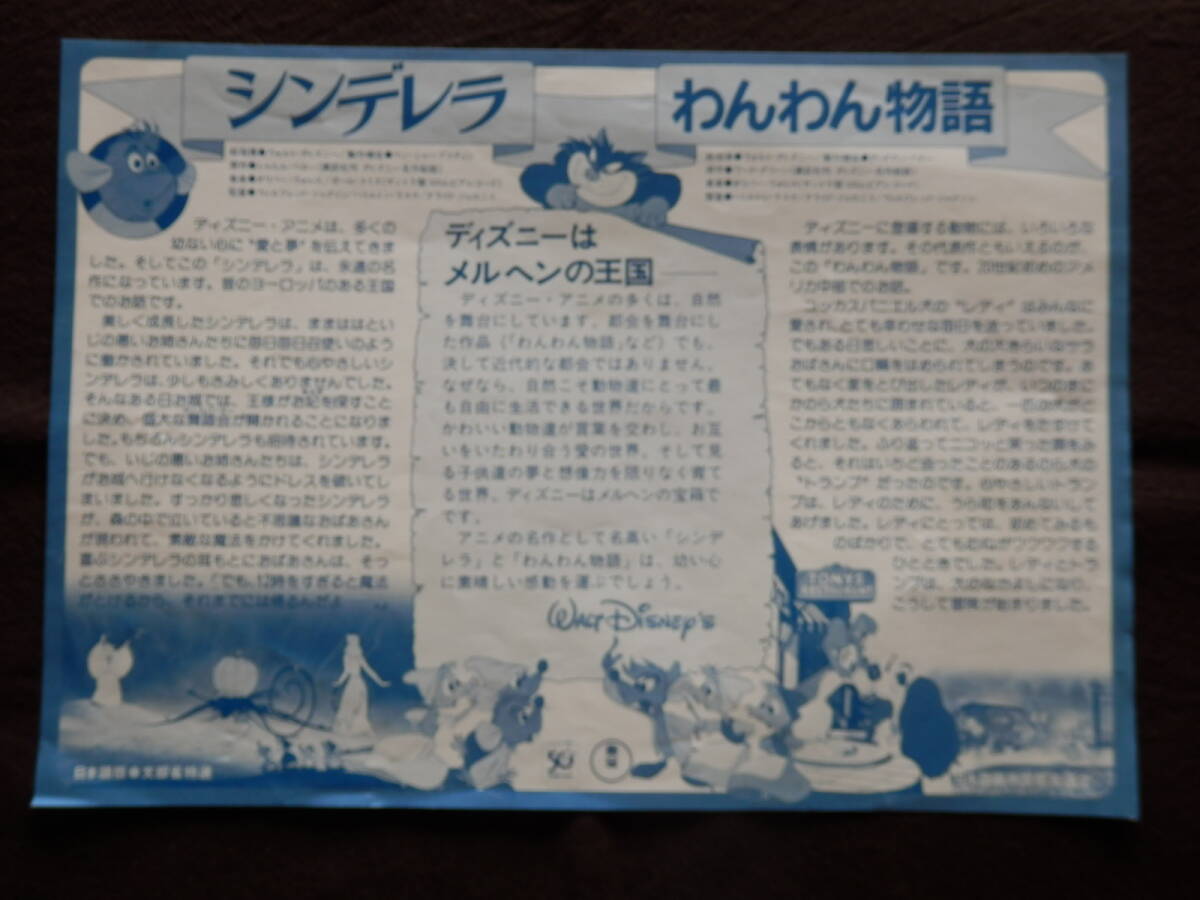 シンデレラ
ディズニー・アニメは、多くの
幼ない心に"愛と夢"を伝えてきま
した。そしてこの「シンデレラ」は、永遠の名
作になっています。昔のヨーロッパのある王国
でのお話です。
美しく成長したシンデレラは、ままははとい
じの悪いお姉さんたちに毎日毎日召使いのよう
に働かされていました。それでも心やさしいシ
ンデレラは、少しもさみしくありませんでした。
そんなある日お城では、王様がお妃を探すこと
に決め、盛大な舞踏会が開かれることになりま
した。もちろんシンデレラも招待されています。
でも、いじの悪いお姉さんたちは、シンデレラ
がお城へ行けなくなるようにドレスを破いてし
まいました。すっかり悲しくなったシンデレラ
が、森の中で泣いていると不思議なおばあさん
が現われて、素敵な魔法をかけてくれました。
喜ぶシンデレラの耳もとにおばあさんは、そっ
とささやきました。「でも、12時をすぎると魔法
がとけるから、それまでには帰るんだよ
日本語版★文部省特選
ディズニーは
メルヘンの王国
ディズニー・アニメの多くは、自然
を舞台にしています。都会を舞台にし
た作品(「わんわん物語」など)でも、
決して近代的な都会ではありません。
なぜなら、自然こそ動物達にとって最
も自由に生活できる世界だからです。
かわいい動物達が言葉を交わし、お互
いをいたわり合う愛の世界、そして見
る子供達の夢と想像力を限りなく育て
る世界、ディズニーはメルヘンの宝箱で
です。
アニメの名作として名高い「シンデ
レラ」と「わんわん物語」は、幼い心
に素晴しい感動を運ぶでしょう。
WALT DISNEY'S
50
わんわん物語
ディズニーに登場する動物には、いろいろな
表情があります。その代表作ともいえるのが、
この「わんわん物語」です。20世紀初めのアメ
リカ中部でのお話。
コッカスパニエル犬の"レディ"はみんなに
愛され、とても幸わせな毎日を送っていました。
でもある日悲しいことに、犬の大きらいなサラ
おばさんに口輪をはめられてしまうのです。あ
てもなく家をとび出したレディが、いつのまに
かのら犬たちに囲まれていると、一匹の犬がど
こからともなくあらわれて、レディをたすけて
くれました。ふり返ってニコッと笑った顔をみ
ると、それはいちど会ったことのあるのら犬の
"トランプ"だったのです。心やさしいトラン
プは、レディのために、うら町をあんないして
あげました。レディにとっては、初めてみるも
のばかりで、とても心がワクワクする
ひとときでした。レディとトラ
ンプは、大のなかよしになり、
こうして冒険が始まりました。
TONYS